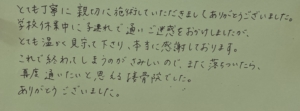 とても丁寧に親切に施術していただきましてありがとうございました。
学校休業中に子連れで通いご迷惑をおかけしましたが、
とても温かく見守って下さり、本当に感謝しております。
これで終わってしまうのがさみしいので、また落ちついたら、
再度通いたいと思える接骨院でした。
ありがとうございました。